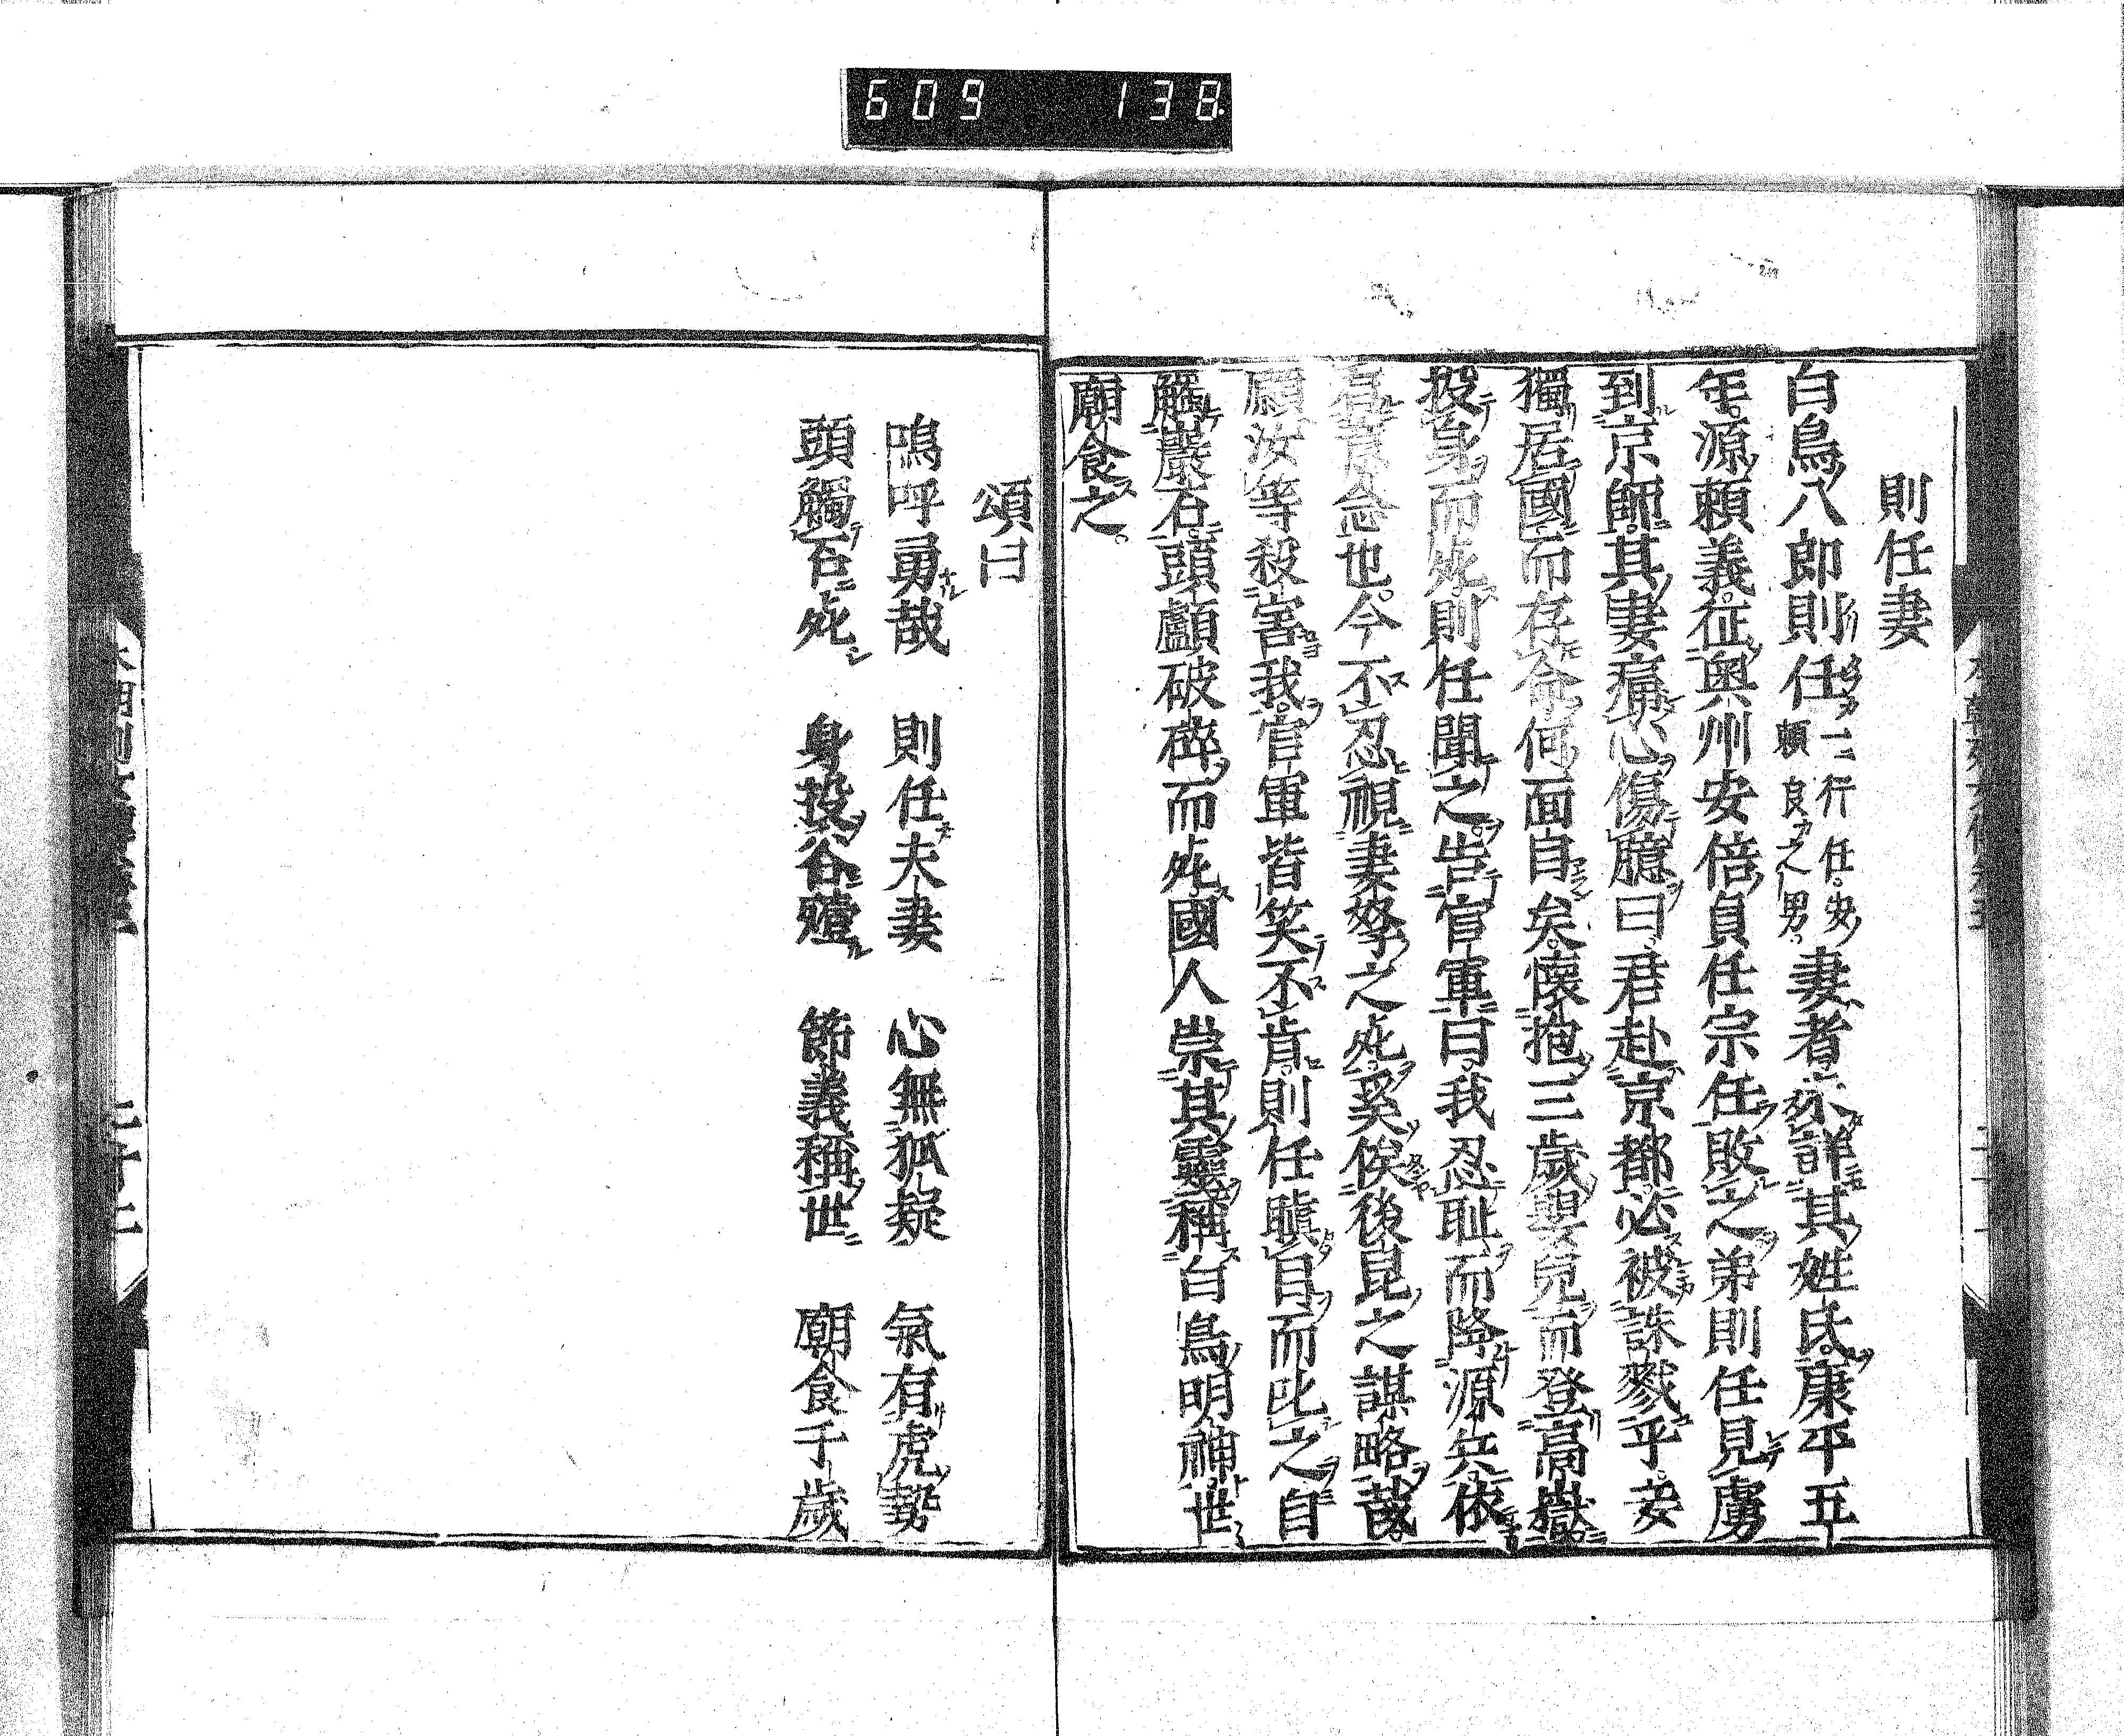 609 138
則任妻
白鳥八郎則任一ニ行任安頼良之男妻者不詳其姓氏康平五
年源頼義征奥州安倍貞任宗任敗之弟則任見虜
到京師其妻痛心傷臆曰君赴京都必被誅戮乎妾
獨居國而存命何面目矣懐抱三歳嬰兒而登高嶽
投身而死則任聞之告官軍曰我忍耻而降源兵依
有意念也今不忍視妻孥之死奚俟後昆之謀略哉
願汝等殺害我官軍皆笑不肯則任瞋目而叱之自
觸巖石頭顱破碎而死國人崇其靈稱白鳥明神世
廟食之
頌曰
嗚呼勇哉 則任夫妻 心無狐疑 氣有虎勢
頭觸石死 身投谷殪 節義稱世 廟食千歳